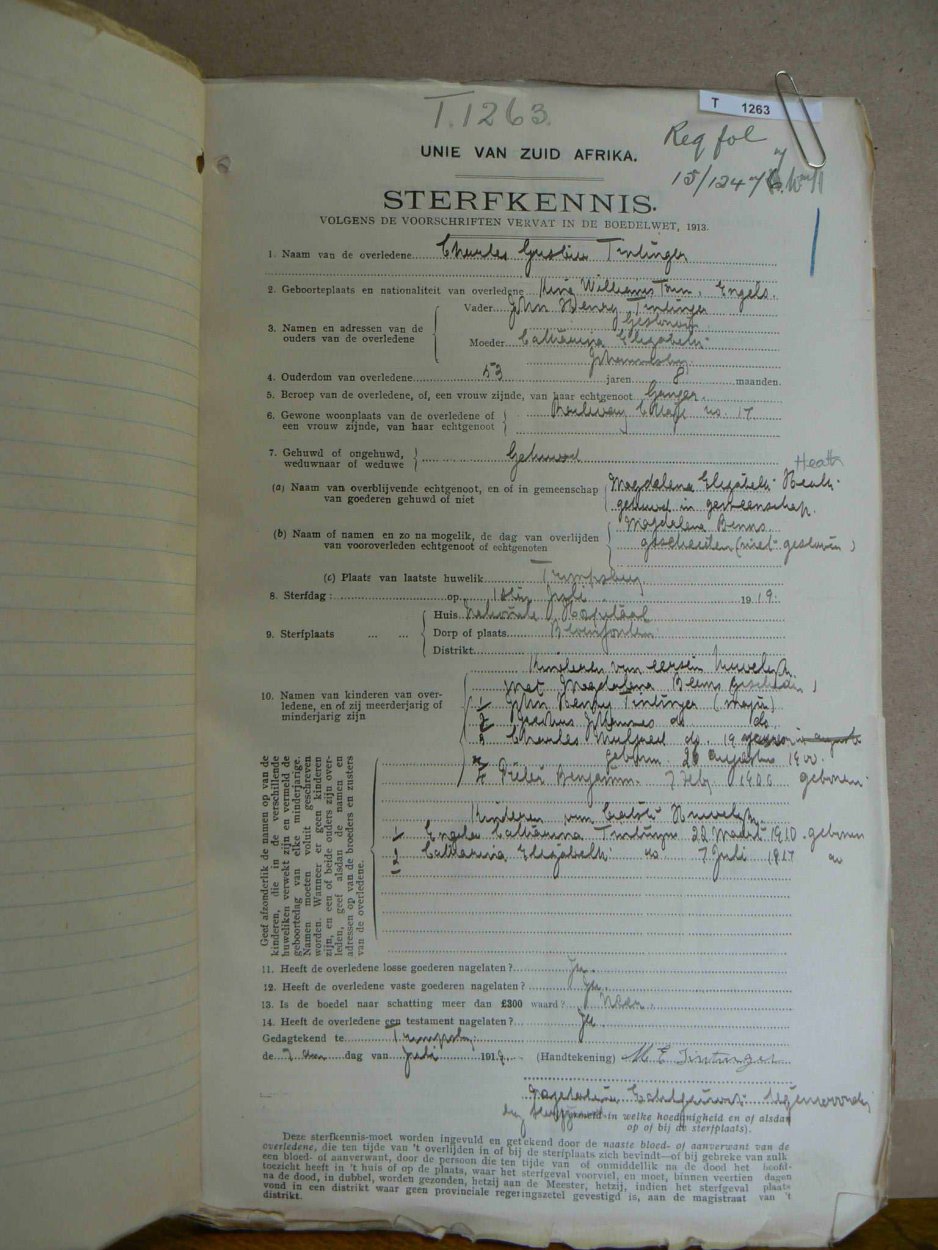 T.1263.
T 1263
Req fol
15/124
UNIE VAN ZUID AFRIKA.
STERFKENNIS.
VOLGENS DE VOORSCHRIFTEN VERVAT IN DE BOEDELWET, 1913.
1. Naam van de overledene Charles Tindinger
2. Geboorteplaats en nationaliteit van overledene King Williams Town. Engels.
3. Namen en adressen van de ouders van de overledene
Vader John Henry Tindinger
Gestorven
Moeder Catharina Elizabeth
Johannesburg
4. Ouderdom van overledene 53 jaren 8 maanden.
5. Beroep van de overledene, of, een vrouw zijnde, van haar echtgenoot Ganger.
6. Gewone woonplaats van de overledene of een vrouw zijnde, van haar echtgenoot
Railway Cottage no. 17
7. Gehuwd of ongehuwd, weduwnaar of weduwe
Gehuwd
Heath
(a) Naam van overblijvende echtgenoot, en of in gemeenschap van goederen gehuwd of niet
Magdalena Elizabeth Heath
gehuwd in gemeenschap.
(b) Naam of namen en zo na mogelik, de dag van overlijden van vooroverleden echtgenoot of echtgenoten
Magdalena
gescheiden (niet gestorven)
(c) Plaats van laatste huwelik Trompsburg
8. Sterfdag: op Juli 1919.
9. Sterfplaats
Huis Nationale Hospitaal
Dorp of plaats Bloemfontein
Distrikt
10. Namen van kinderen van overledene, en of zij meerderjarig of minderjarig zijn
Kinderen van eerste huwelik
met Magdalena gescheiden)
1 John Henry Tindinger (major)
2 Johannes do do
3 Charles do. 19
geboren 26 Augustus 1900.
4 Pieter Benjamin. 7 Feb. geboren
Kinderen van laatste Huwelijk
1 Catharina 22 Maart 1910 geboren
2 Catharina Elizabeth do 7 Juli 1917 do
Geef afzonderlik de namen op van de kinderen, die in de verschillende huweliken verwekt zijn en vermeld de geboortedag van elke minderjarige. Namen moeten voluit geschreven worden. Wanneer er geen kinderen zijn, en een of beide ouders zijn overleden, geef alsdan de namen en adressen op van de broeders en zusters van de overledene.
11. Heeft de overledene losse goederen nagelaten? Ja.
12. Heeft de overledene vaste goederen nagelaten? Ja.
13. Is de boedel naar schatting meer dan £300 waard? Neen.
14. Heeft de overledene een testament nagelaten? Ja
Gedagtekend te Trompsburg
de dag van Juli 1919. (Handtekening) M E Tindinger
in welke hoedanigheid en of alsdan op of bij de sterfplaats).
Deze sterfkennis moet worden ingevuld en getekend door de naaste bloed- of aanverwant van de
overledene, die ten tijde van 't overlijden in of bij de sterfplaats zich bevindt—of bij gebreke van zulk
een bloed- of aanverwant, door de persoon die ten tijde van of onmiddellik na de dood het hoofd-
toezicht heeft in 't huis of op de plaats, waar het sterfgeval voorviel, en moet, binnen veertien dagen
na de dood, in dubbel, worden gezonden, hetzij aan de Meester, hetzij, indien het sterfgeval plaats
vond in een distrikt waar geen provinciale regeringszetel gevestigd is, aan de magistraat van 't
distrikt.